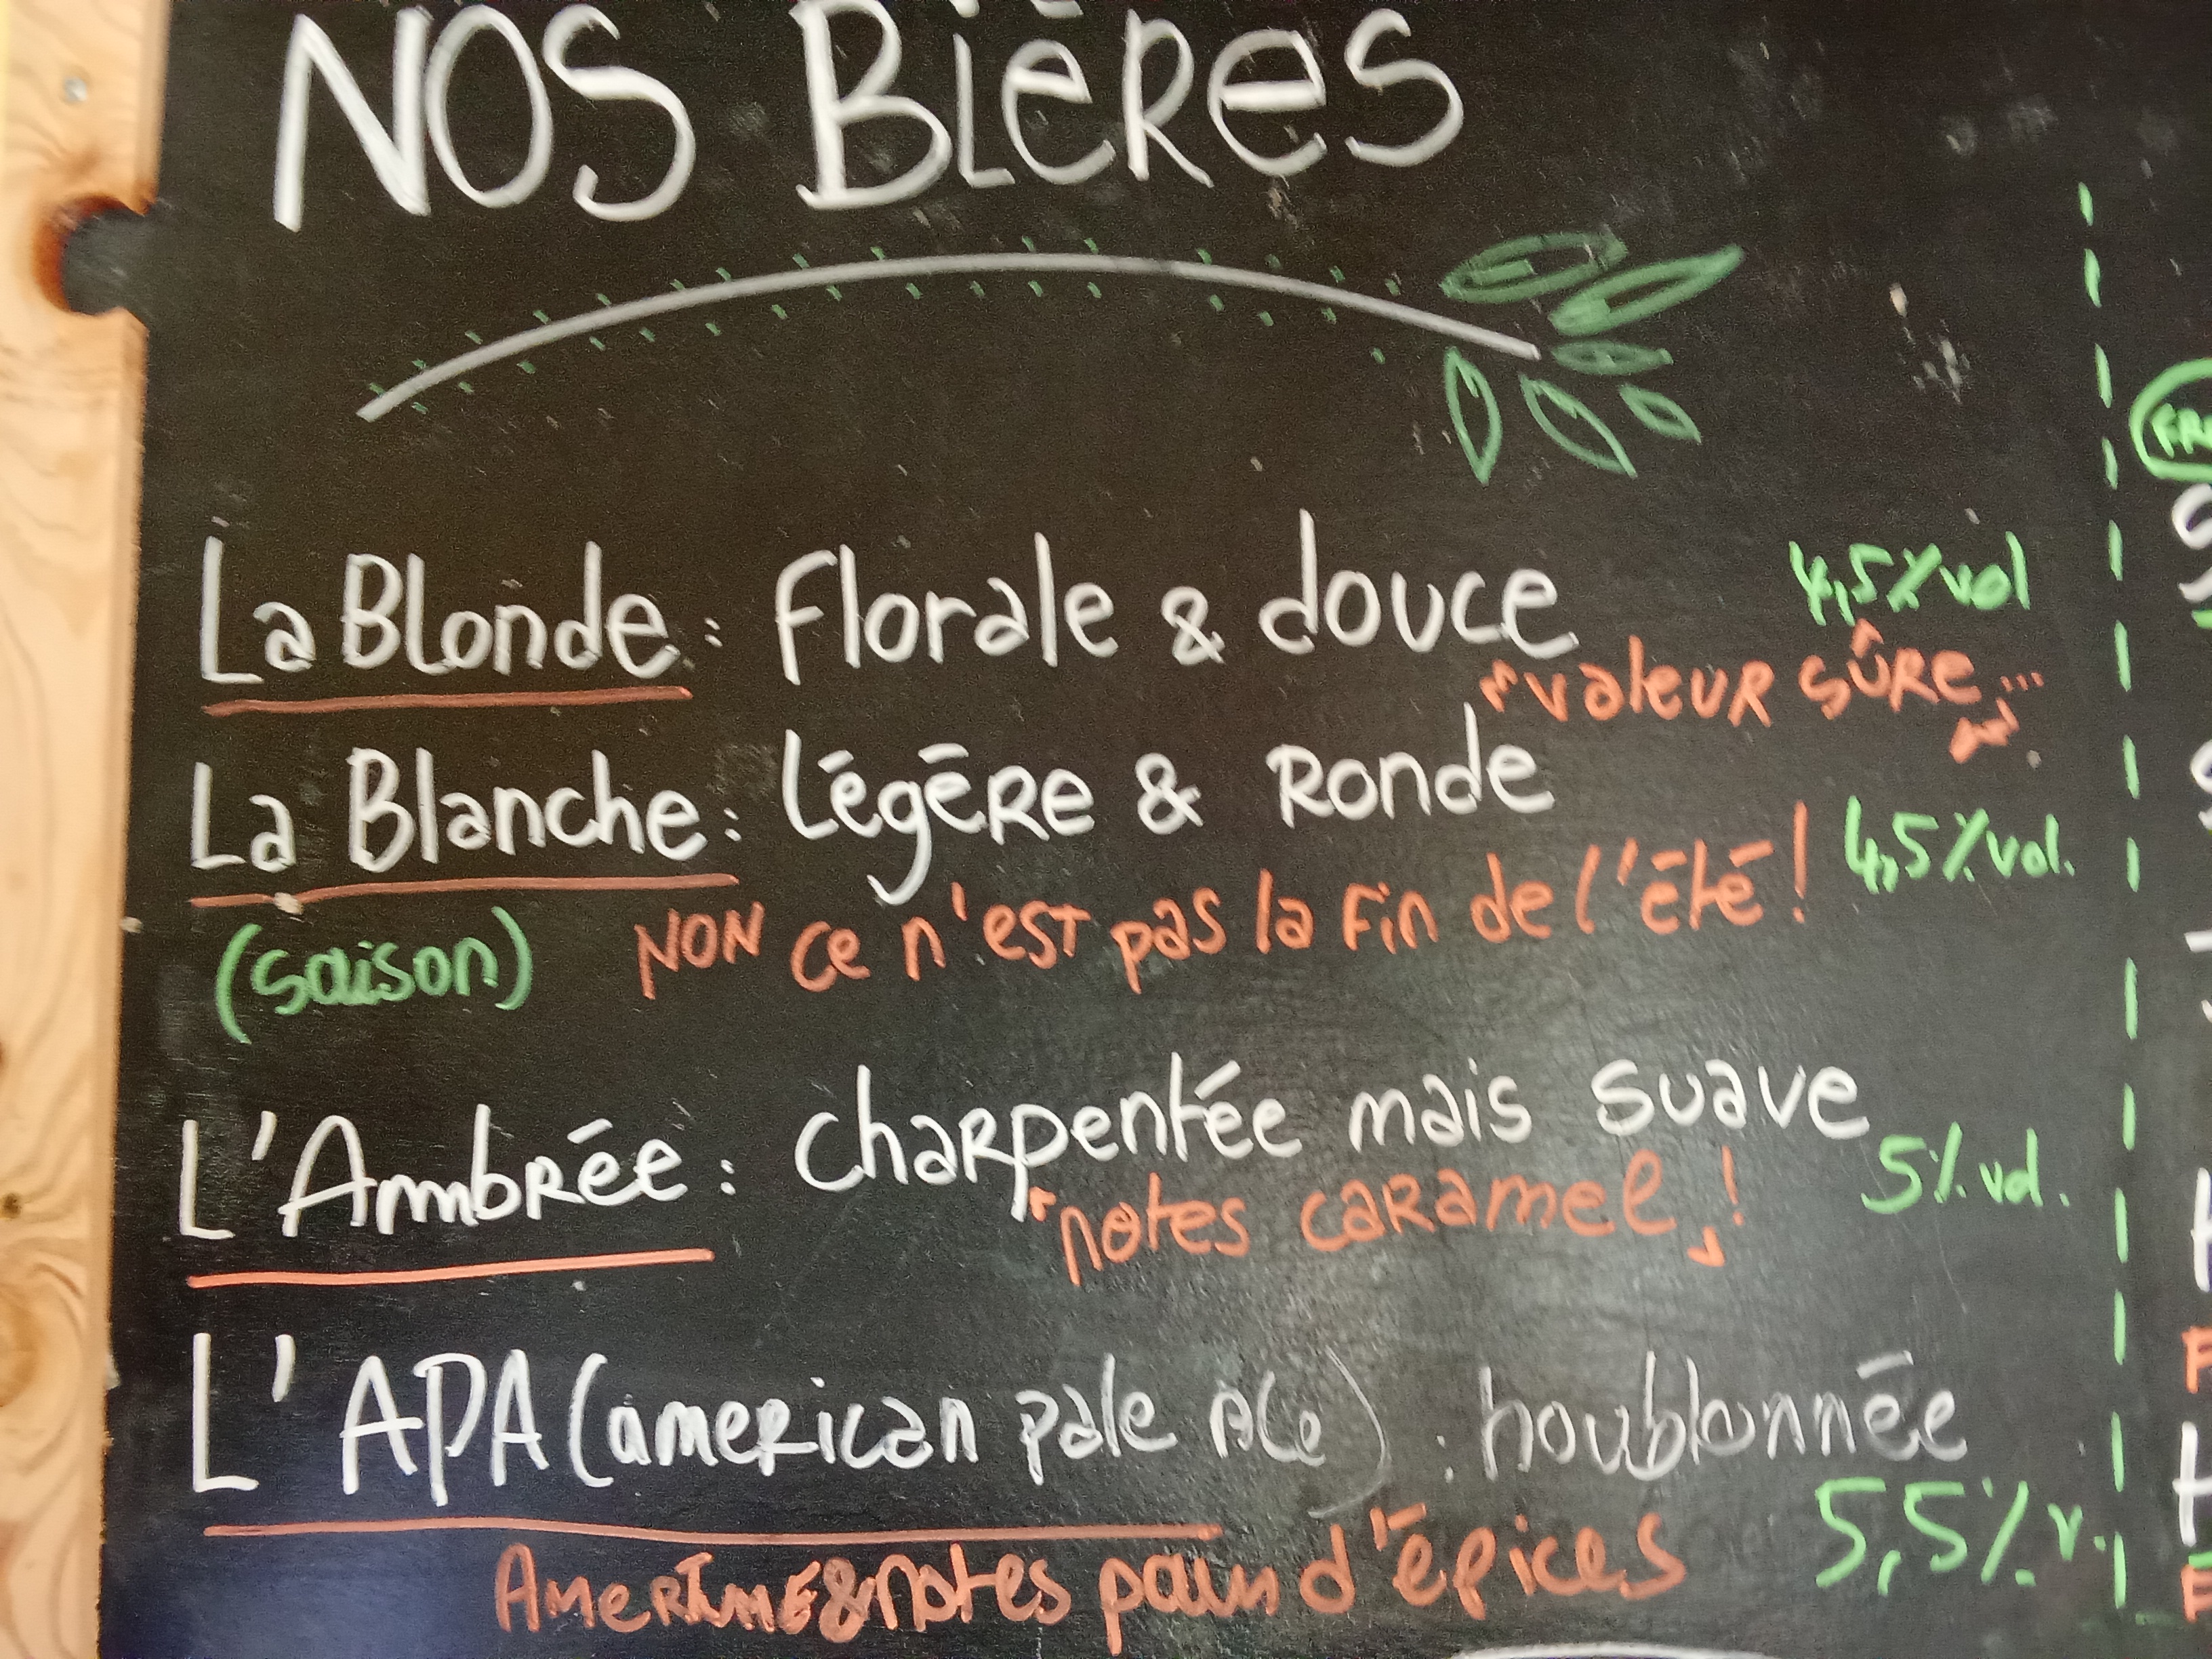 NOS BIÈRES
La Blonde : florale & douce
4,5% vol
"valeur sûre..."
La Blanche : légère & Ronde
4,5% vol.
(saison) NON ce n'est pas la fin de l'été !
L'Ambrée : charpentée mais suave
5% vol.
"notes caramel" !
L'APA (american pale Ale) : houblonnée
5,5% v.
AmeRTUME & notes pain d'épices